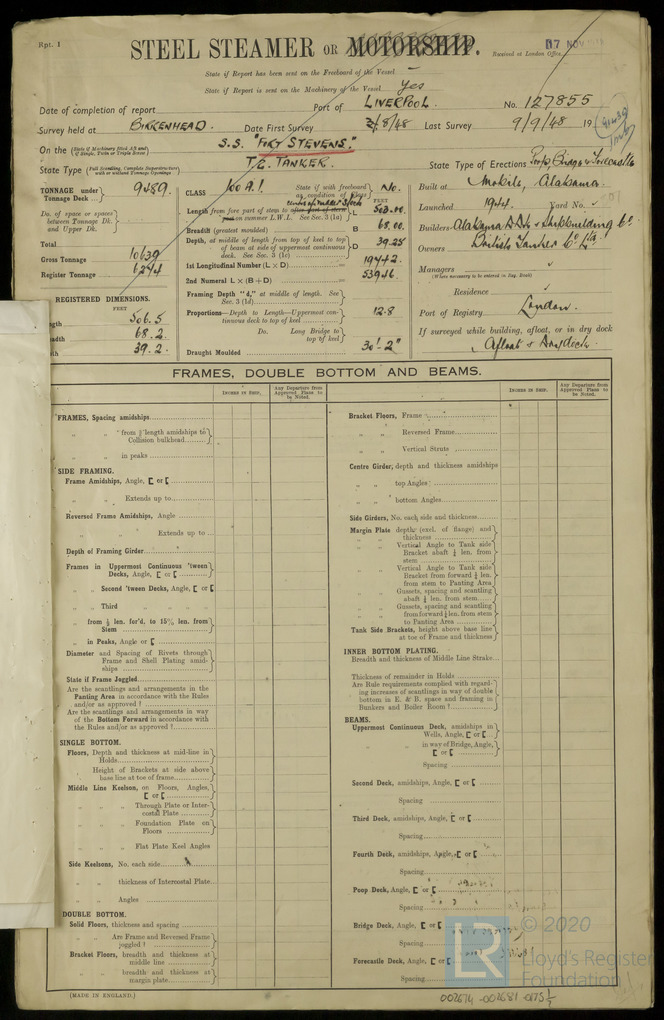 Rpt. 1
STEEL STEAMER OR MOTORSHIP.
Received at London Office
State if Report has been sent on the Freeboard of the Vessel
State if Report is sent on the Machinery of the Vessel Yes
Date of completion of report Port of LIVERPOOL. No. 127855
Survey held at BIRKENHEAD. Date First Survey 3/8/48 Last Survey 9/9/48 19
On the (State if Machinery fitted Aft and if Single, Twin or Triple Screw) S.S. "FORT STEVENS."
T2 TANKER.
State Type (Full Scantling, Complete Superstructure with or without Tonnage Openings)
State Type of Erections Poop Bridge & Forecastle
TONNAGE under Tonnage Deck 9489.
Do. of space or spaces between Tonnage Dk. and Upper Dk.
Total
Gross Tonnage 10639
Register Tonnage 6244
REGISTERED DIMENSIONS.
FEET
506.5
68.2
39.2
CLASS 100 A.1. State if with freeboard as condition of class No.
FEET
Length from fore part of stem to
on summer L.W.L. See Sec. 3 (1a) L 503.00
Breadth (greatest moulded) B 68.00
Depth, at middle of length from top of keel to top of beam at side of uppermost continuous deck. See Sec. 3 (1c) D 39.25
1st Longitudinal Number (L × D) 19742
2nd Numeral L × (B + D) 53946
Framing Depth "d," at middle of length. See Sec. 3 (1d)
Proportions—Depth to Length—Uppermost continuous deck to top of keel 12.8
Do. Long Bridge to top of keel
Draught Moulded 30'-2"
Built at Mobile, Alabama.
Launched 1944. Yard No.
Builders Alabama D.D. & Shipbuilding Co.
Owners British Tanker Co. Ltd.
Managers
(Where necessary to be entered in Reg. Book)
Residence
Port of Registry London.
If surveyed while building, afloat, or in dry dock
Afloat & Drydock.
FRAMES, DOUBLE BOTTOM AND BEAMS.
INCHES IN SHIP. Any Departure from Approved Plans to be Noted.
INCHES IN SHIP. Any Departure from Approved Plans to be Noted.
FRAMES, Spacing amidships
" " from ⅗ length amidships to Collision bulkhead
" " in peaks
SIDE FRAMING.
Frame Amidships, Angle, [ or [
" " Extends up to
Reversed Frame Amidships, Angle
" " Extends up to
Depth of Framing Girder
Frames in Uppermost Continuous 'tween Decks, Angle, [ or [
" Second 'tween Decks, Angle, [ or [
" Third
" from ½ len. for'd. to 15% len. from Stem
" in Peaks, Angle or [
Diameter and Spacing of Rivets through Frame and Shell Plating amidships
State if Frame Joggled
Are the scantlings and arrangements in the Panting Area in accordance with the Rules and/or as approved?
Are the scantlings and arrangements in way of the Bottom Forward in accordance with the Rules and/or as approved?
SINGLE BOTTOM.
Floors, Depth and thickness at mid-line in Holds
Height of Brackets at side above base line at toe of frame
Middle Line Keelson, on Floors, Angles, [ or [
" " Through Plate or Intercostal Plate
" " Foundation Plate on Floors
" " Flat Plate Keel Angles
Side Keelsons, No. each side
" " thickness of Intercostal Plate
" " Angles
DOUBLE BOTTOM.
Solid Floors, thickness and spacing
" " Are Frame and Reversed Frame joggled?
Bracket Floors, breadth and thickness at middle line
" " breadth and thickness at margin plate
Bracket Floors, Frame
" " Reversed Frame
" " Vertical Struts
Centre Girder, depth and thickness amidships
" " top Angles
" " bottom Angles
Side Girders, No. each side and thickness
Margin Plate depth (excl. of flange) and thickness
" " Vertical Angle to Tank side Bracket abaft ¼ len. from stem
" " Vertical Angle to Tank side Bracket from forward ¼ len. from stem to Panting Area
" " Gussets, spacing and scantling abaft ¼ len. from stem
" " Gussets, spacing and scantling from forward ¼ len. from stem to Panting Area
Tank Side Brackets, height above base line at toe of Frame and thickness
INNER BOTTOM PLATING.
Breadth and thickness of Middle Line Strake
Thickness of remainder in Holds
Are Rule requirements complied with regarding increases of scantlings in way of double bottom in E. & B. space and framing in Bunkers and Boiler Room?
BEAMS.
Uppermost Continuous Deck, amidships in Wells, Angle, [ or [
" " in way of Bridge, Angle, [ or [
Spacing
Second Deck, amidships, Angle, [ or [
Spacing
Third Deck, amidships, Angle, [ or [
Spacing
Fourth Deck, amidships, Angle, [ or [
Spacing
Poop Deck, Angle, [ or [
Spacing
Bridge Deck, Angle, [ or [
Spacing
Forecastle Deck, Angle, [ or [
Spacing
(MADE IN ENGLAND.)
LR © 2020
Lloyd's Register
Foundation
002674-002681-0175½